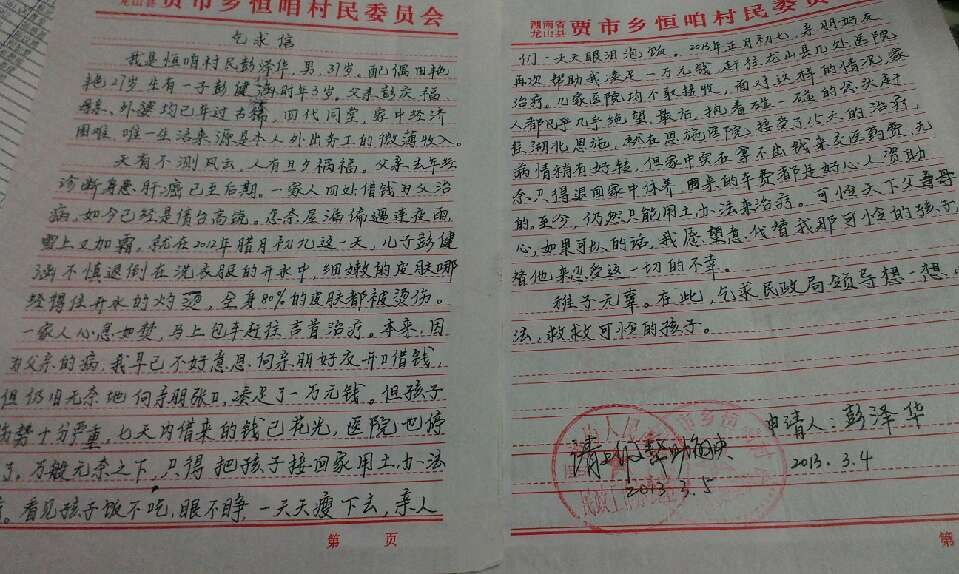 龙山县 贾市乡恒咱村民委员会
乞求信
我是恒咱村民彭泽华,男,31岁。配偶田艳
艳27岁生有一子彭健涵时年3岁。父亲彭庆福
母亲、外婆均已年过古稀,四代同堂,家中经济
困难,唯一生活来源是本人外出务工的微薄收入。
天有不测风云,人有旦夕祸福。父亲去年经
诊断身患肝癌已至后期。一家人四处借钱为父治
病,如今已经是债台高筑。怎奈屋漏偏遇连夜雨,
雪上又加霜,就在2012年腊月初九这一天,儿子彭健
涵不慎退倒在洗衣服的开水中,细嫩的皮肤哪
经得住开水的灼烫,全身80%的皮肤都被烫伤。
一家人心急如焚,马上包车赶往吉首治疗。本来,因
为父亲的病,我早已不好意思向亲朋好友开口借钱,
但仍旧无奈地向亲朋张口,凑足了一万元钱。但孩子
伤势十分严重,七天内借来的钱已花光,医院也停
了,万般无奈之下,只得把孩子接回家用土办法
。看见孩子饭不吃,眼不睁,一天天瘦下去,亲人
湖南省
龙山县 贾市乡恒咱村民委员
们一天天眼泪泡饭。2013年正月初七,亲朋好友
再次帮助我凑足一万元钱,赶往龙山县几处医院
治疗。几家医院均不敢接收,面对这样的情况,家
人都几乎几乎绝望,最后,抱着碰一碰的侥幸赶
往湖北恩施,就在恩施医院接受了15天的治疗,
病情稍有好转,但家中实在拿不出钱来交医药费,无
奈只得退回家中休养,回来的车费都是好心人资助
的,至今,仍然只能用土办法来治疗。可怜天下父母
心,如果可以的话,我愿望意代替我那可怜的孩子,
替他来忍受这一切的不幸。
稚子无辜。在此,乞求民政局领导想一想
法,救救可怜的孩子。
申请人:彭泽华
2013.3.4
2013.3.5
第 页
第